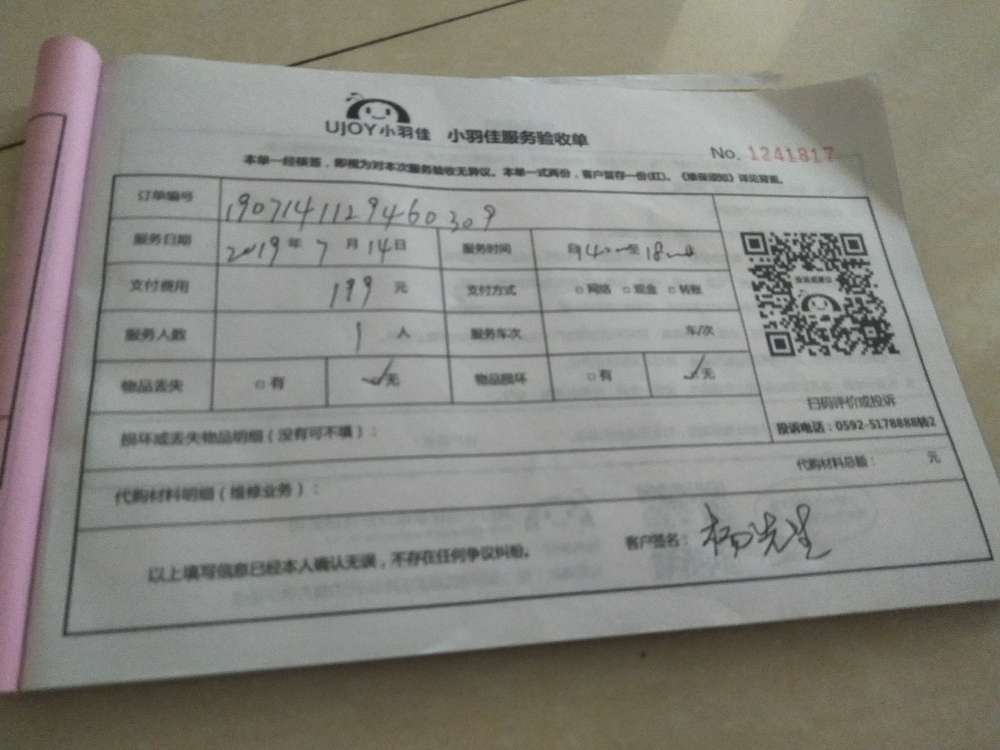 UJOY小羽佳 小羽佳服务验收单
No. 1241817
本单一经核签，即视为对本次服务验收无异议。本单一式两份，客户留存一份(红)。《维保须知》详见背面。
订单编号 1907141129460309
服务日期 2019年7月14日 服务时间 至
支付费用 199元 支付方式 □网络 □现金 □转账
服务人数 1人 服务车次 车/次
物品丢失 □有 无 物品损坏 □有 无
扫码评价或投诉
投诉电话：0592-5178888转2
损坏或丢失物品明细（没有可不填）：
代购材料明细（维修业务）： 代购材料总额： 元
以上填写信息已经本人确认无误，不存在任何争议纠纷。 客户签名：杨先生